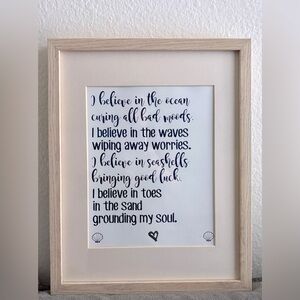 I believe in the ocean
curing all bad moods.
I believe in the waves
wiping away worries.
I believe in seashells
bringing good luck.
I believe in toes
in the sand
grounding my soul.